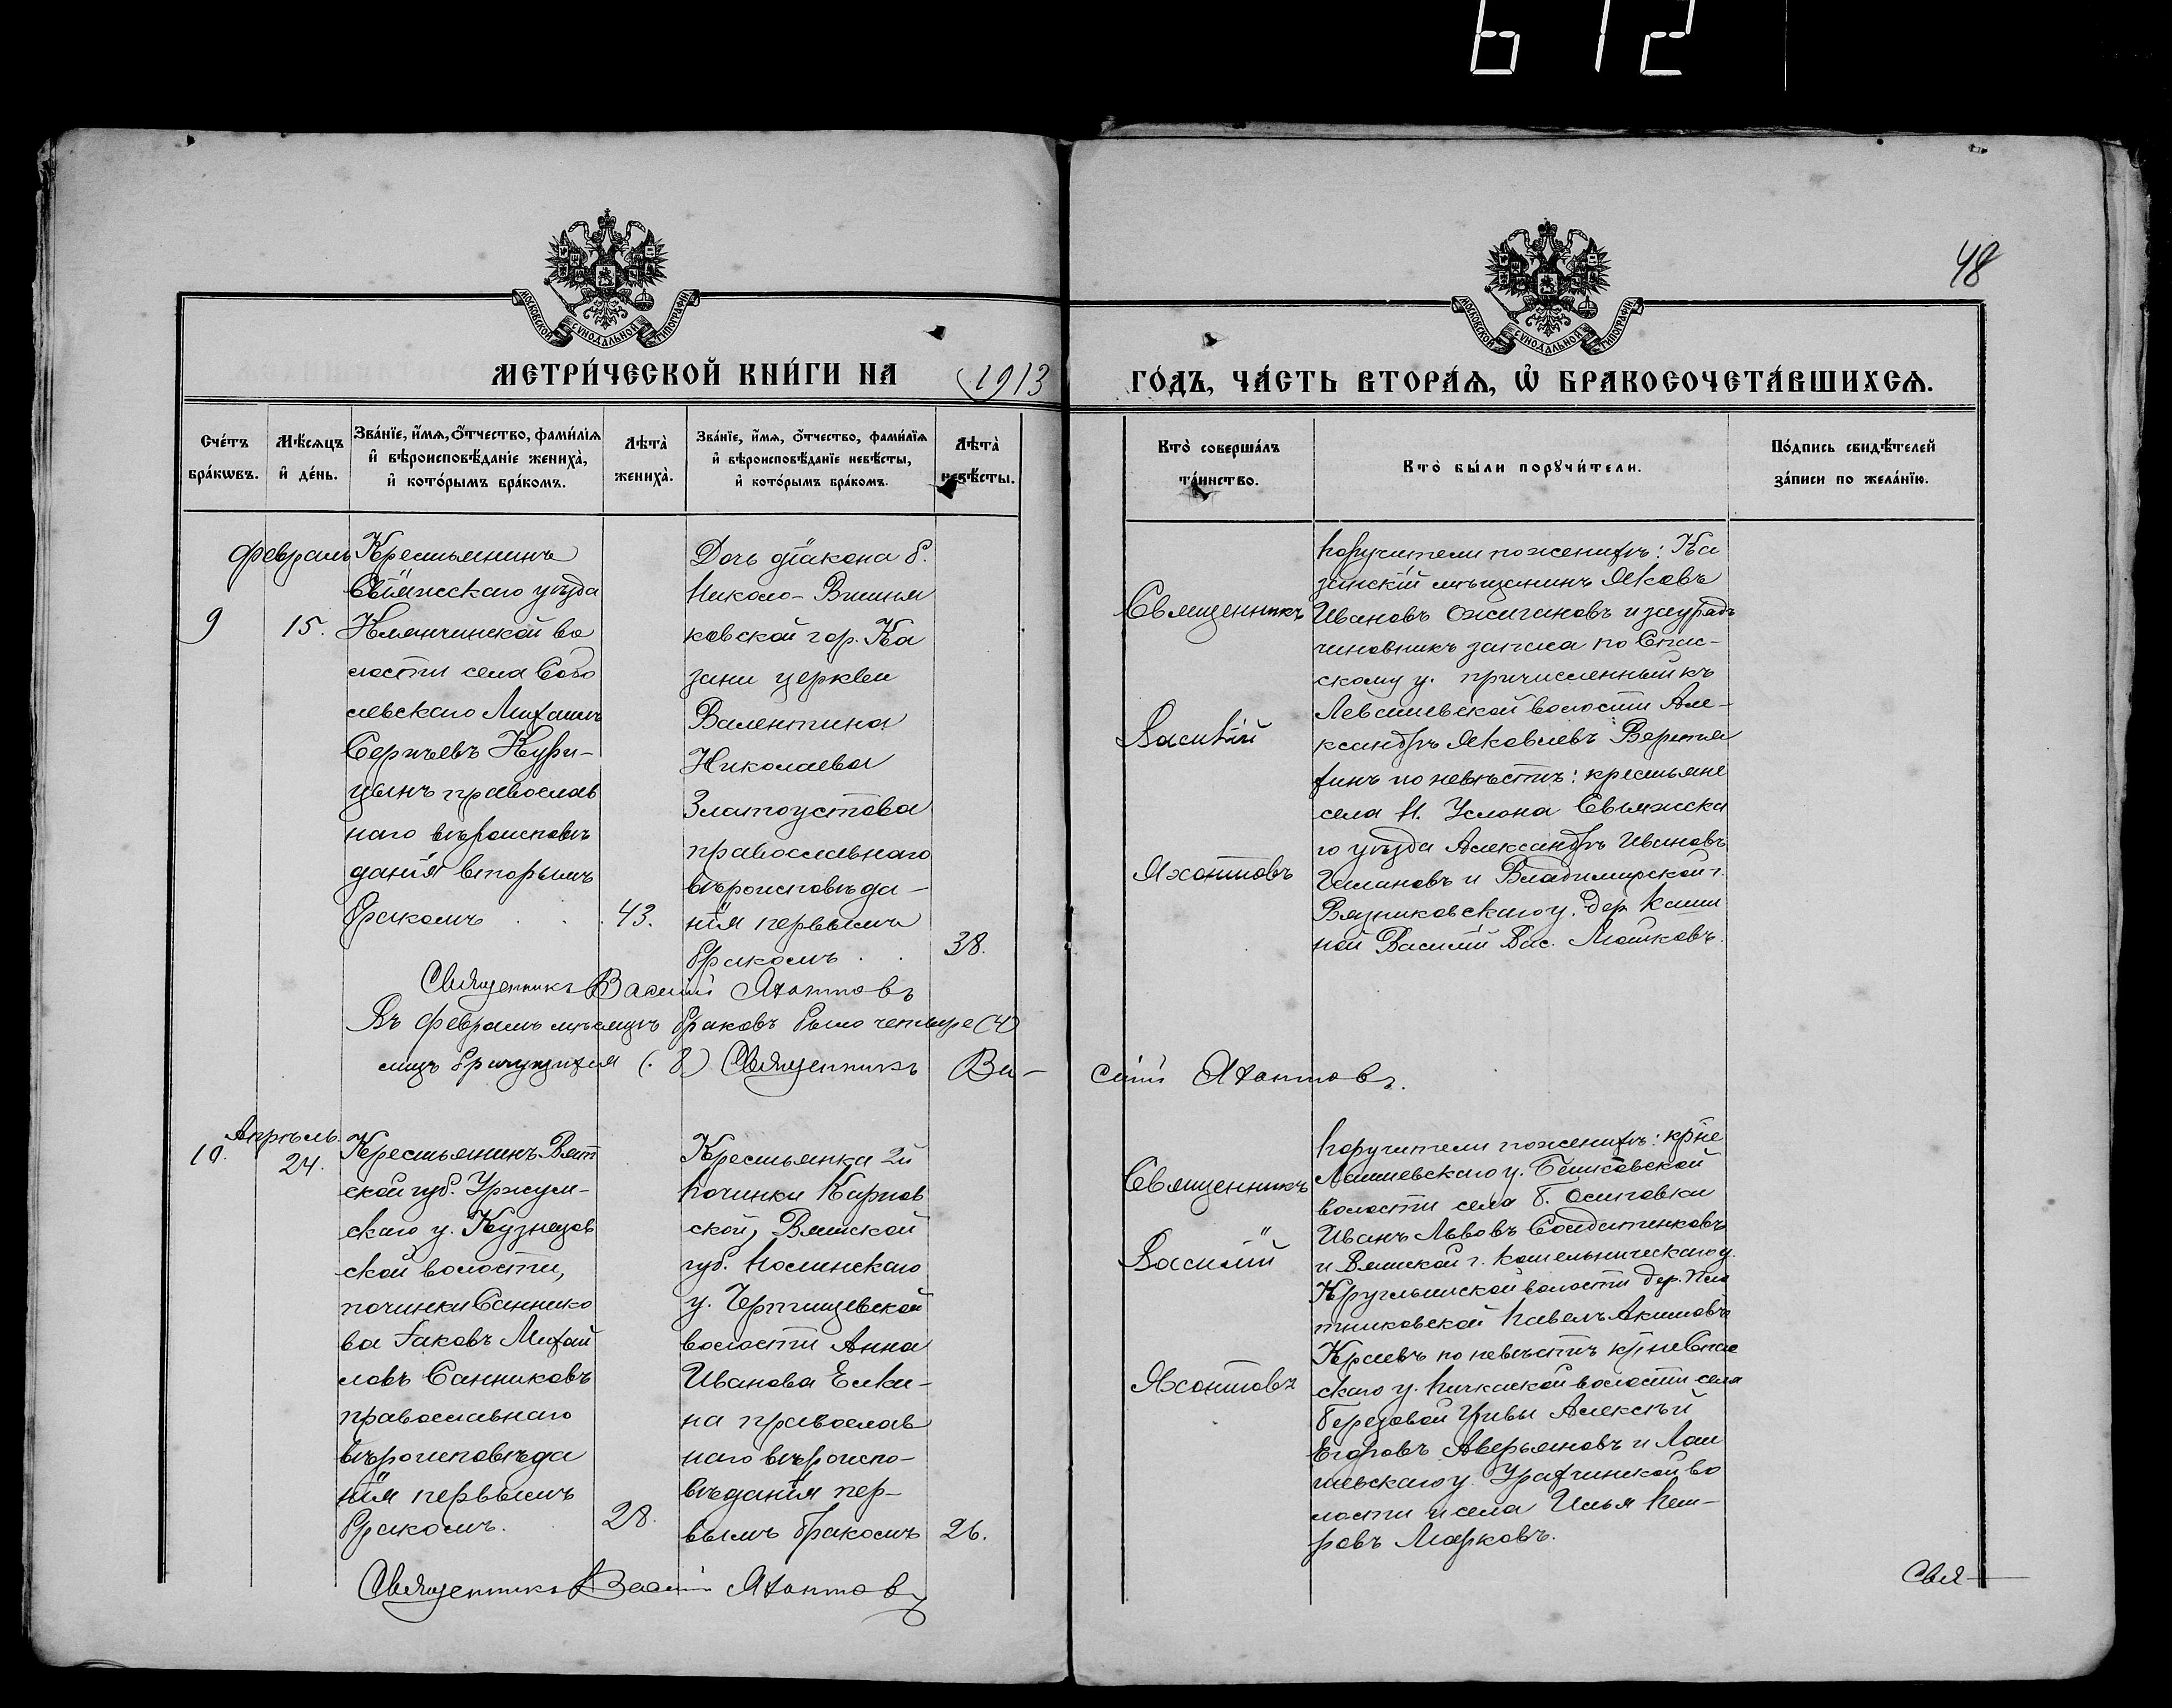 612
48
МОСКОВСКОЙ СѴНОДАЛЬНОЙ ТИПОГРАФІИ
МОСКОВСКОЙ СѴНОДАЛЬНОЙ ТИПОГРАФІИ
МЕТРИ́ЧЕСКОЙ КНИ́ГИ НА 1913 ГО́ДЪ, ЧА́СТЬ ВТОРА́Ѧ, Ѽ БРАКОСОЧЕТА́ВШИХСѦ.
Сче́тъ бра́кѡвъ.
Мѣ́сѧцъ и҆ де́нь.
Зва́нїе, и҆́мѧ, ѻ҆́тчество, фами́лїѧ
и҆ вѣроисповѣ́данїе жениха̀,
и҆ кото́рымъ бра́комъ.
Лѣта̀ жениха̀.
Зва́нїе, и҆́мѧ, ѻ҆́тчество, фами́лїѧ
и҆ вѣроисповѣ́данїе невѣ́сты,
и҆ кото́рымъ бра́комъ.
Лѣта̀ невѣ́сты.
Кто̀ соверша́лъ та́инство.
Кто̀ бы́ли порꙋчи́тели.
По́дпись свидѣ́телей за́писи по жела́нїю.
Февраль
9
15.
Крестьянинъ
Свіяжскаго уѣзда
Клянчинской во
лости села Собо
левскаго Михаилъ
Сергѣевъ Кури-
цынъ православ
наго вѣроисповѣ
данія вторымъ
бракомъ
43.
Дочь діакона б.
Николо-Вишня
ковской гор. Ка
зани церкви
Валентина
Николаева
Златоустова
православнаго
вѣроисповѣда-
нія первымъ
бракомъ
38.
Священникъ
Василій
Яхонтовъ
Поручители по женихѣ: Ка
занскій мѣщанинъ Яковъ
Ивановъ Ожигановъ и заурядъ
чиновникъ запаса по Спас-
скому у. причисленный къ
Левашевской волости Але-
ксандръ Яковлевъ Веретея
хинъ по невѣстѣ: крестьяне
села Н. Услона Свіяжска
го уѣзда Александръ Ивановъ
Галановъ и Владимирской г.
Вязниковскаго у. дер.
ной Василій Вас. Мошковъ.
Священникъ Василій Яхонтовъ
Въ февралѣ мѣсяцѣ браковъ было четыре (4)
лицъ брачущихся (8) Священникъ Ва-
силій Яхонтовъ.
Апрѣль.
10.
24.
Крестьянинъ Вят
ской губ. Уржум-
скаго у. Кузнецов
ской волости,
починки Саннико
ва Іаковъ Михай
ловъ Санниковъ
православнаго
вѣроисповѣда
нія первымъ
бракомъ.
28.
Крестьянка 2й
починки Карпов
ской, Вятской
губ. Нолинскаго
у. волости Анна
Иванова Елки-
на православ
наго вѣроиспо-
вѣданія пер-
вымъ бракомъ
26.
Священникъ
Василій
Яхонтовъ
Поручители по женихѣ: кр̃не
Лаишевскаго у.
волости села Б. Осиповки
Иванъ Львовъ Солдатенковъ
и Вятской г. Котельническаго у.
волости дер. Пло
тниковской Павелъ Акимовъ
по невѣстѣ кр̃не Спас
скаго у. волости села
Березовой Гривы Алексѣй
Егоровъ Аверьяновъ и Лаи
шевскаго у. Урахчинской во
лости и села Илья Пет-
ровъ Марковъ.
Священникъ Василій Яхонтовъ
Свя